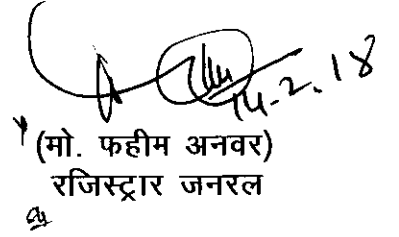 14-2.18
(मो. फहीम अनवर)
रजिस्ट्रार जनरल